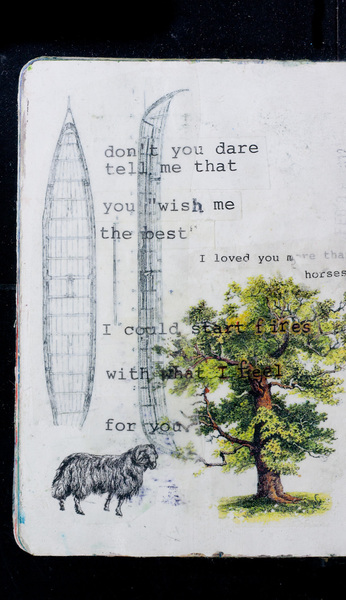 don't you dare
tell me that
you "wish me
the best"
I loved you more tha
horses
I could start fires
with what I feel
for you